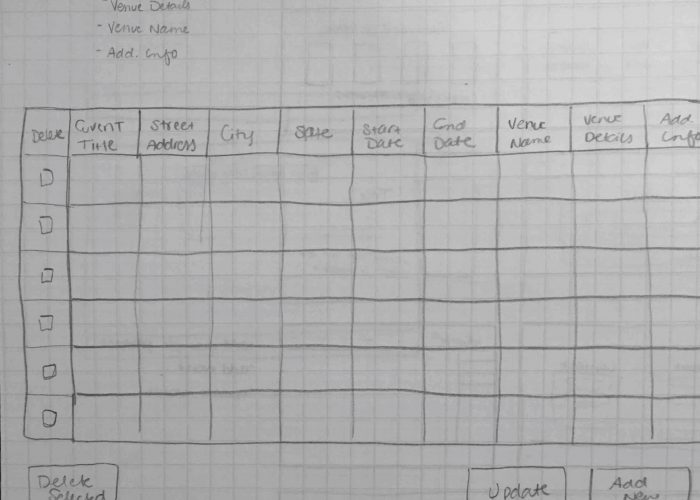 - Venue Details
- Venue Name
- Add. Info
Delete
Event
Title
Street
Address
City
State
Start
Date
End
Date
Venue
Name
Venue
Details
Add.
Info
Delete
Selected
Update
Add
New